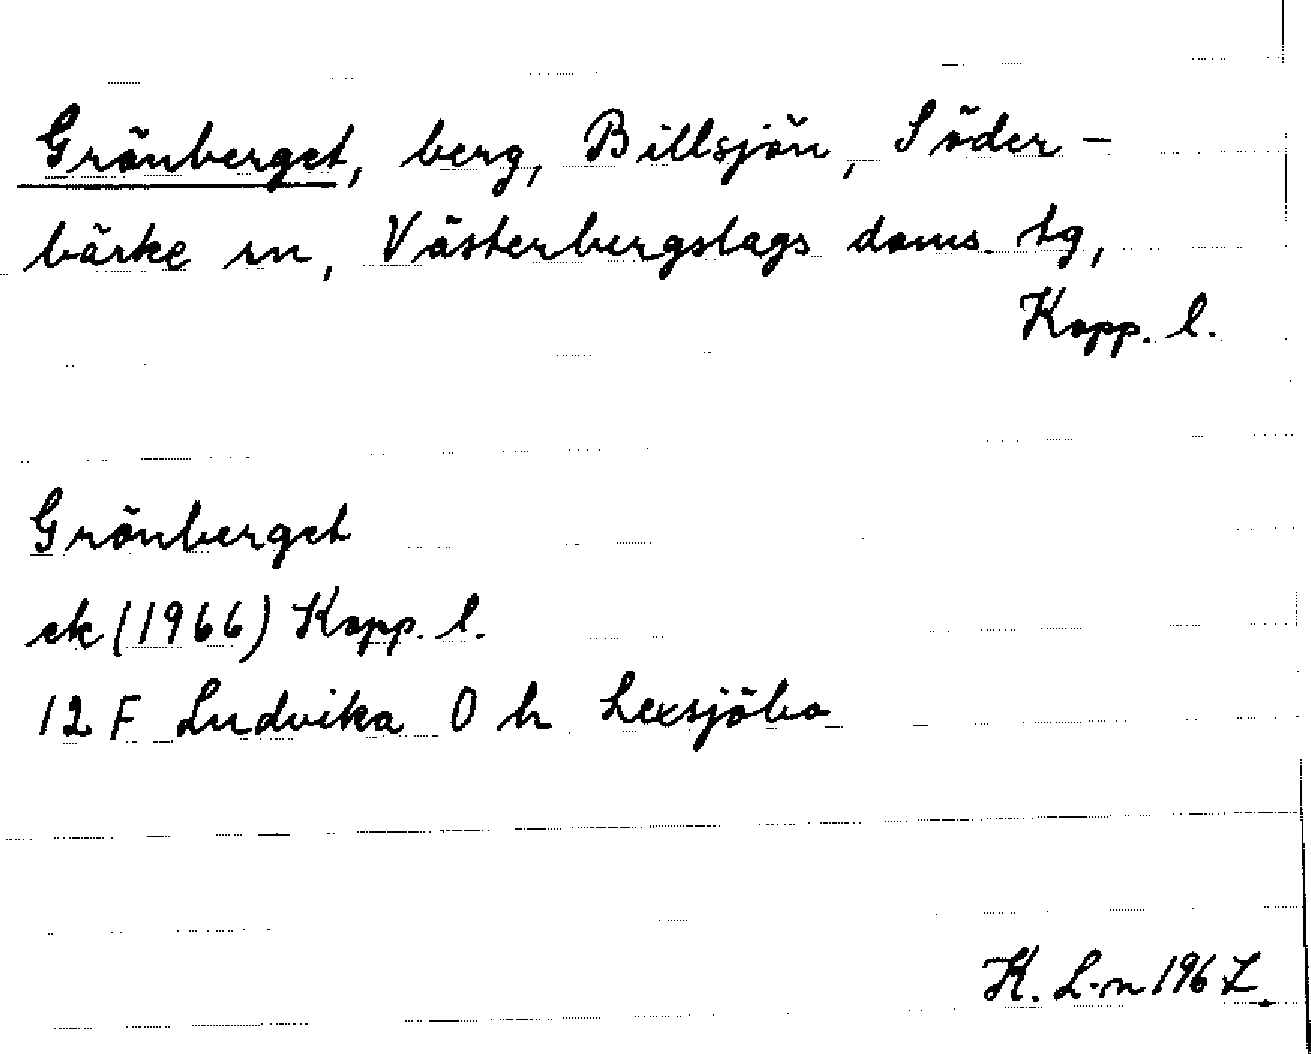 Grönberget, berg, Billsjön, Söder-
bärke sn, Västerbergslags doms. tg,
Kopp. l.
Grönberget
ek (1966) Kopp. l.
12 F Ludvika 0 h Lexsjöbo
K. L-n 1967.